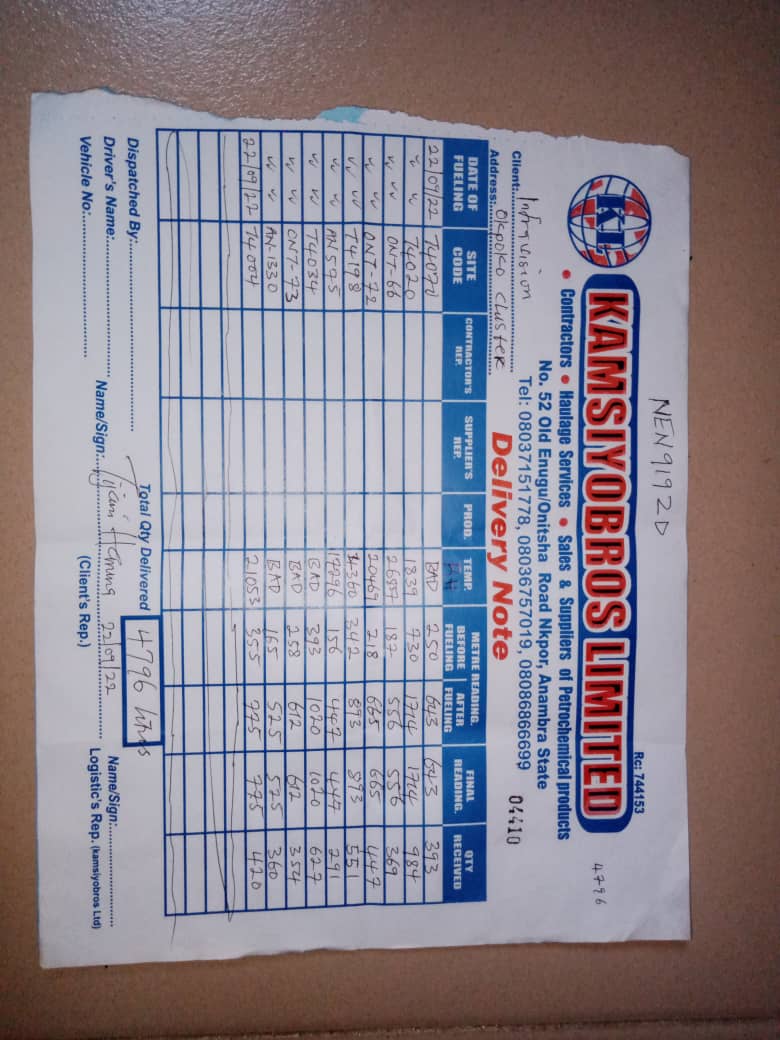 NEN9192D
Rc: 744153
4796
KL
KAMSIYOBROS LIMITED
• Contractors • Haulage Services • Sales & Suppliers of Petrochemical products
No. 52 Old Enugu/Onitsha Road Nkpor, Anambra State
Tel: 08037151778, 08036757019, 08086866699
Client: Infravision
Address: Okpoko cluster
Delivery Note
04410
DATE OF FUELING SITE CODE CONTRACTOR'S REP. SUPPLIER'S REP. PROD. TEMP. METRE READING. BEFORE FUELING AFTER FUELING FINAL READING. QTY RECEIVED
22/09/22 T4070 BAD 250 643 643 393
" " T4020 1839 730 1714 1714 984
" " ONT-66 187 556 556 369
" " ONT-72 20469 218 665 665 447
" " T4198 342 893 893 551
" " AN595 156 447 447 291
" " T4034 BAD 393 1020 1020 627
" " ONT-73 BAD 258 612 612 354
" " AN-1330 BAD 165 525 525 360
22/09/22 T4004 21053 355 775 775 420
Total Qty Delivered 4796 ltrs
Dispatched By:
Driver's Name:
Name/Sign: 22/09/22
(Client's Rep.)
Name/Sign:
Vehicle No:
Logistic's Rep. (kamsiyobros Ltd)